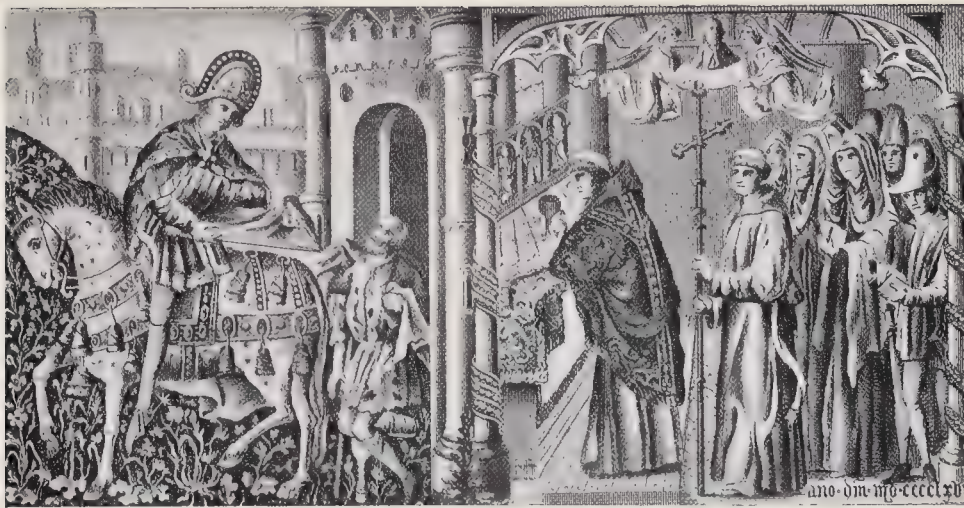 ano·dm̄·mo·cccclxv